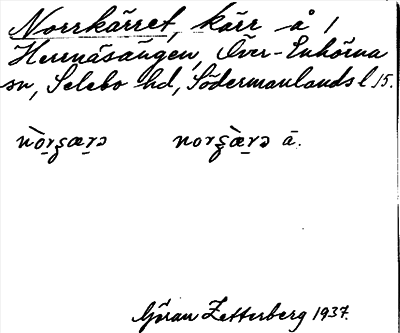 Norrkärret, kärr å /
Herrnäsängen, Över-Enhörna
sn, Selebo hd, Södermanlands l. 15.
nò̱rʂæ̱rə norʂæ̱̀rə ā.
Göran Zetterberg 1937.